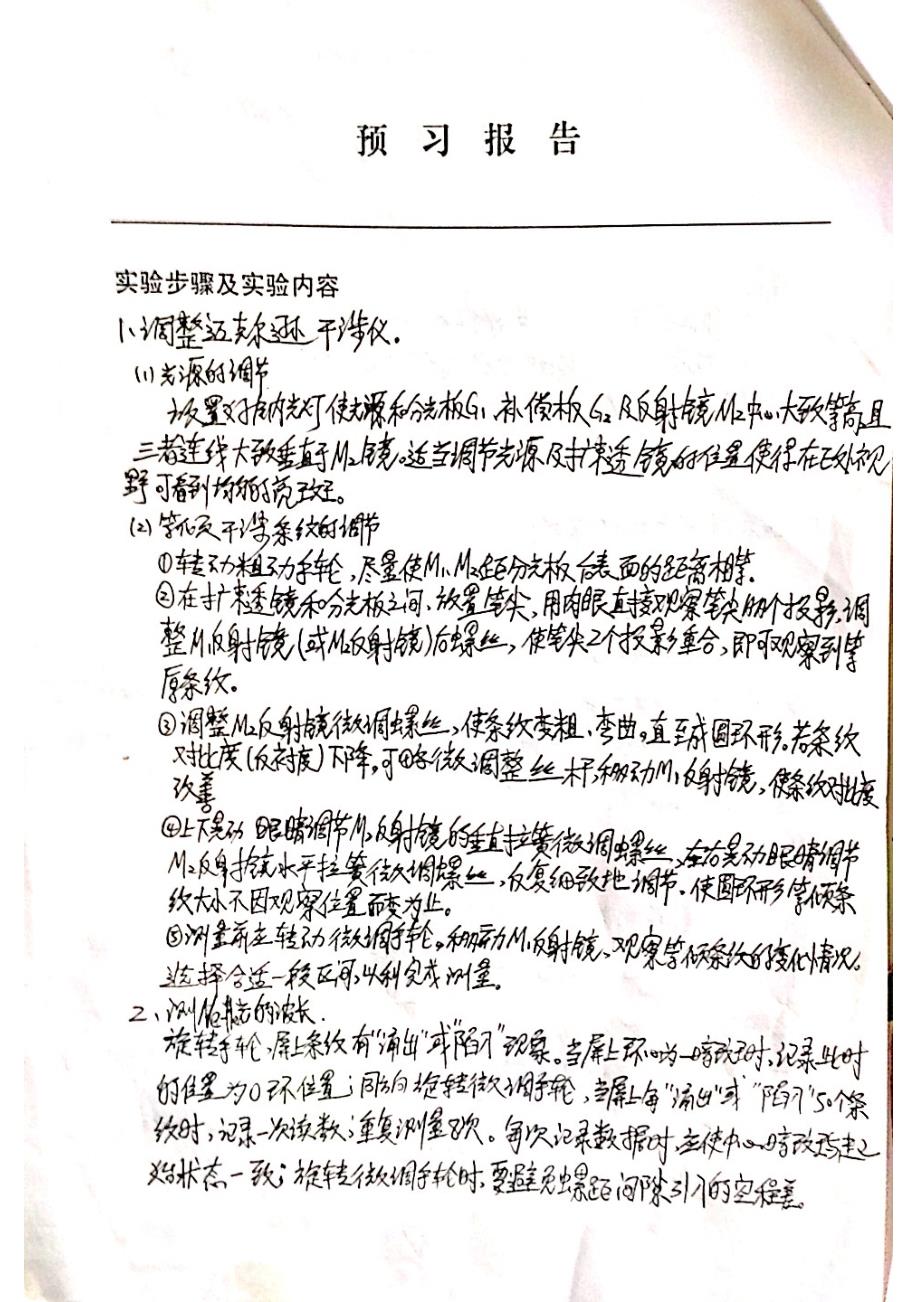 预习报告
实验步骤及实验内容
1、调整迈克尔逊干涉仪.
(1)光源的调节
放置好钠光灯使光源和分光板G1、补偿板G2及反射镜M2中心大致等高,且
三者连线大致垂直于M2镜。适当调节光源及扩束透镜的位置使得在E处视
野可看到均匀的亮斑。
(2)等倾干涉条纹的调节
①转动粗动手轮,尽量使M1、M2距分光板后表面的距离相等.
②在扩束透镜和分光板之间,放置笔尖,用肉眼直接观察笔尖的2个投影,调
整M1反射镜(或M2反射镜)后螺丝,使笔尖2个投影重合,即可观察到等
厚条纹。
③调整M2反射镜微调螺丝,使条纹变粗、弯曲,直至成圆环形。若条纹
对比度(反衬度)下降,可用微调整丝杆,移动M1反射镜,使条纹对比度
改善
④上下晃动眼睛调节M2反射镜的垂直拉簧微调螺丝,左右晃动眼睛调节
M2反射镜水平拉簧微调螺丝,反复细致地调节.使圆环形等倾条
纹大小不因观察位置而变为止。
⑤测量前先转动微调手轮,移动M1反射镜,观察等倾条纹的变化情况。
选择合适一段区间,以利完成测量。
2、测钠光的波长.
旋转手轮,屏上条纹有"涌出"或"陷入"现象。当屏上环心为一暗斑时,记录此时
的位置为0环位置;同方向旋转微调手轮,当屏上每"涌出"或"陷入"50个条
纹时,记录一次读数,重复测量8次。每次记录数据时,应使中心暗斑与起
始状态一致;旋转微调手轮时,要避免螺距间隙引入的空程差。